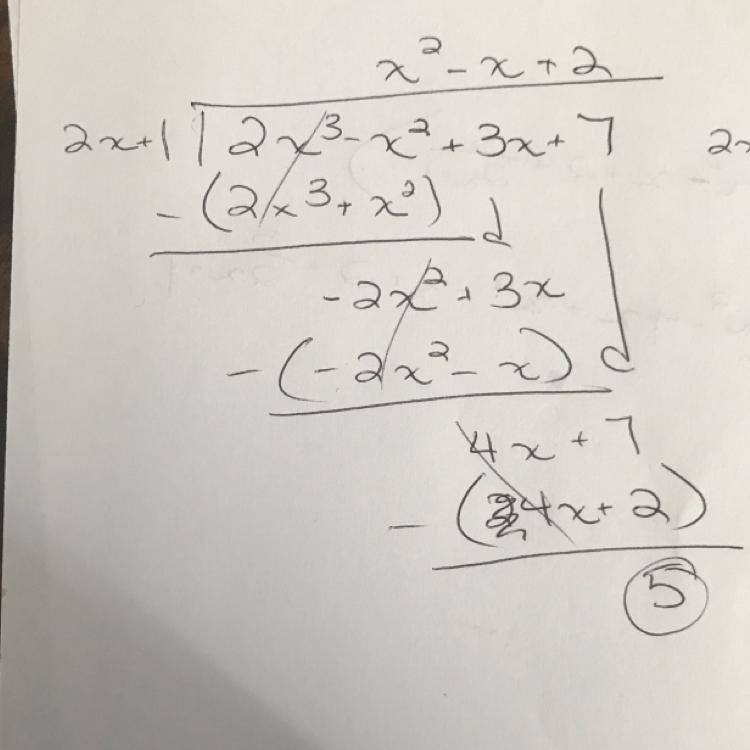 x² - x + 2
2x+1 | 2x³ - x² + 3x + 7
- (2x³ + x²)
-2x² + 3x
- (-2x² - x)
4x + 7
- (4x + 2)
5
2x